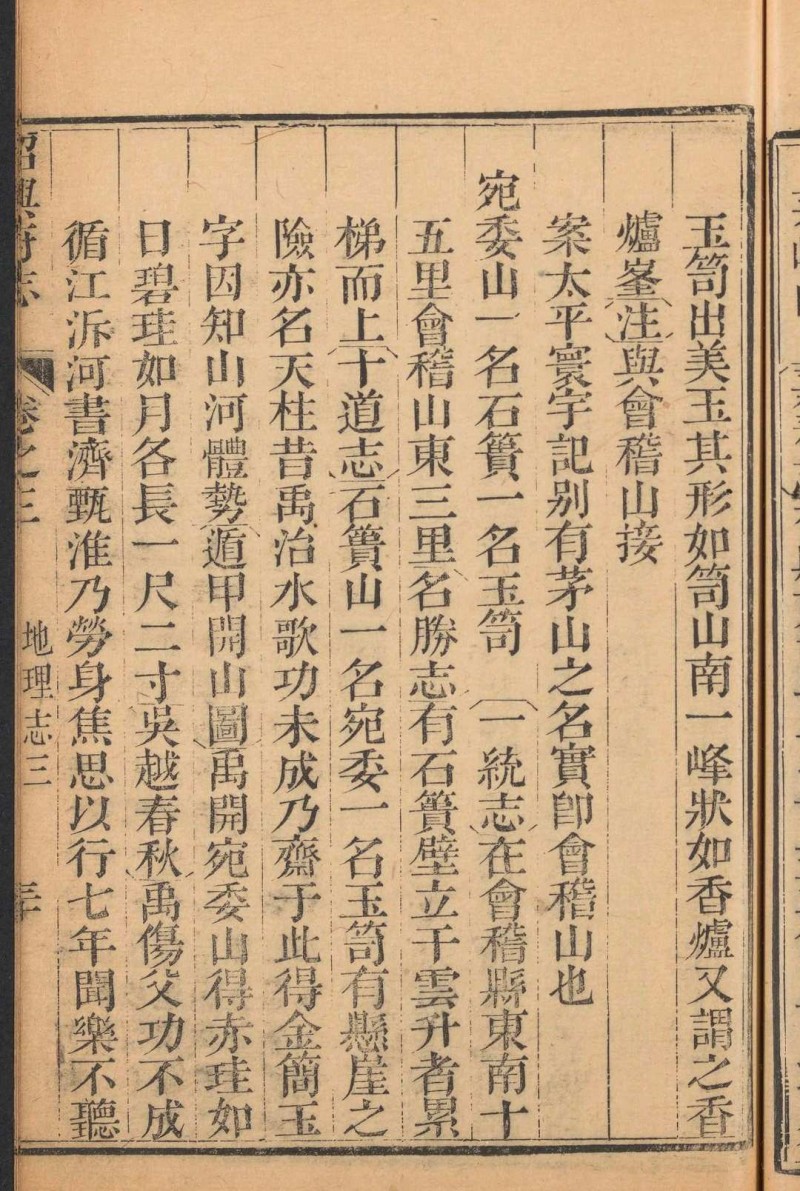 玉笥出美玉其形如笥山南一峰狀如香爐又謂之香
爐峯注與會稽山接
案太平寰宇記別有茅山之名實卽會稽山也
宛委山一名石簣一名玉笥　一統志在會稽縣東南十
五里會稽山東三里名勝志有石簣壁立干雲升者累
梯而上十道志石簣山一名宛委一名玉笥有懸崖之
險亦名天柱昔禹治水歌功未成乃齋于此得金簡玉
字因知山河體勢遁甲開山圖禹開宛委山得赤珪如
日碧珪如月各長一尺二寸吳越春秋禹傷父功不成
循江泝河書濟甄淮乃勞身焦思以行七年聞樂不聽
卷之三　地理志三